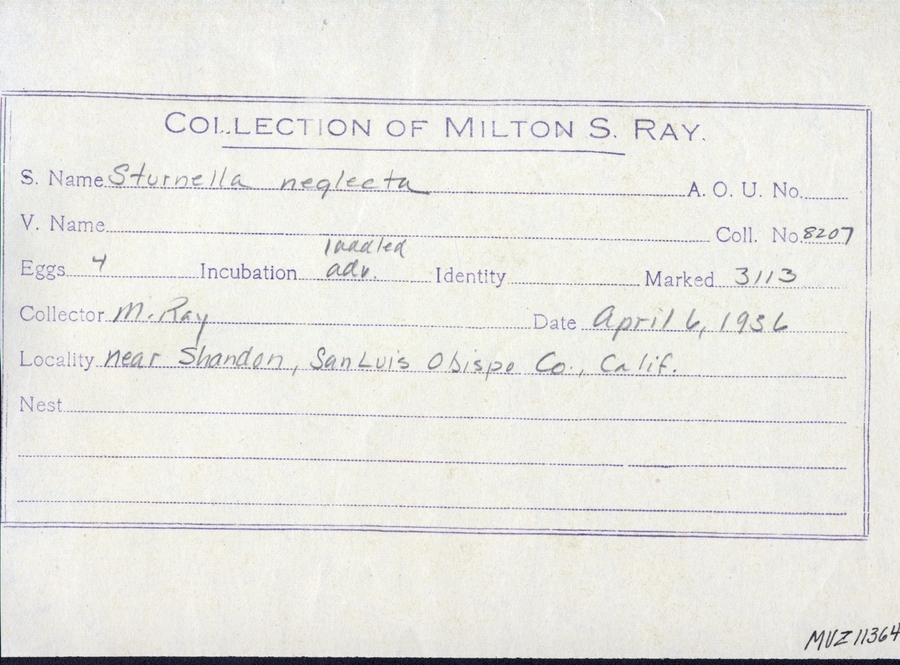 COLLECTION OF MILTON S. RAY.
S. Name Sturnella neglecta A. O. U. No.
V. Name Coll. No. 8207
Eggs 4 Incubation adv. Identity Marked 3113
Collector M. Ray Date April 6, 1936
Locality near Shandon, San Luis Obispo Co., Calif.
Nest
MVZ 11364